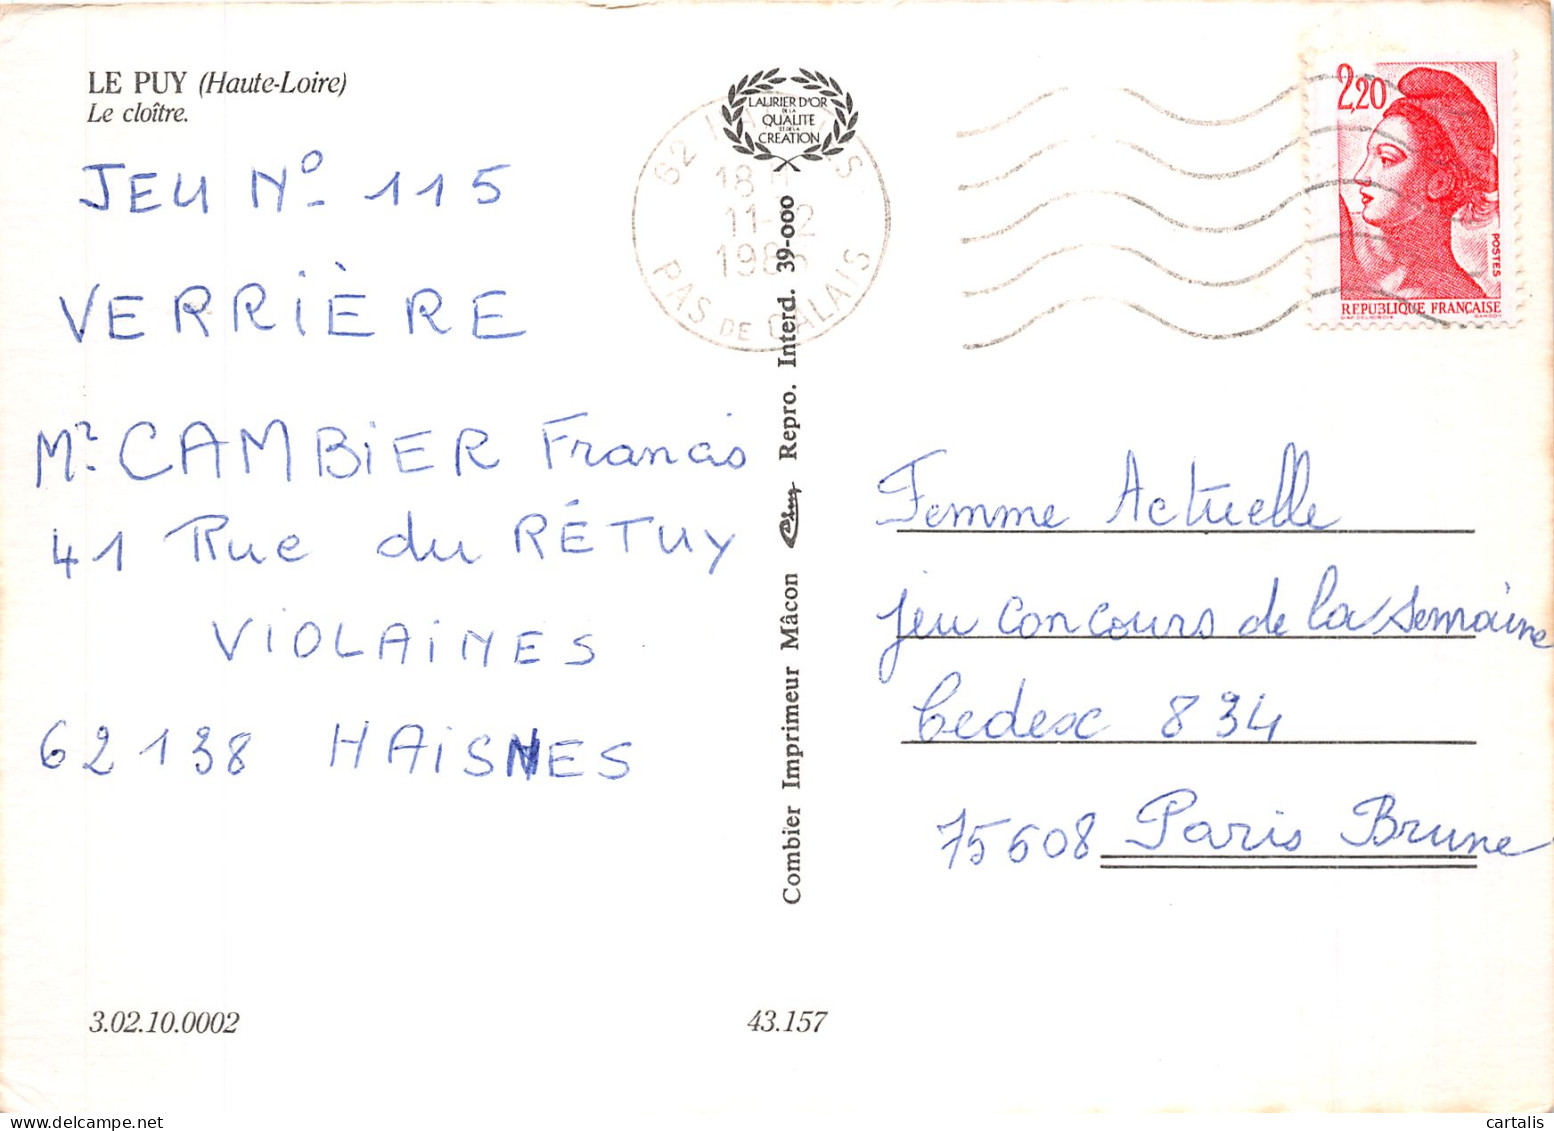 LE PUY (Haute-Loire)
Le cloître.
JEU Nº 115
VERRIÈRE
Mr CAMBIER Francis
41 Rue du RÉTUY
VIOLAINES
62138 HAISNES
3.02.10.0002
43.157
LAURIER D'OR
DE LA
QUALITE
ET DE LA
CREATION
62
18 H
11-12
PAS DE CALAIS
Combier Imprimeur Mâcon Repro. Interd. 39-000
2,20
POSTES
REPUBLIQUE FRANÇAISE
Femme Actuelle
jeu concours de la semaine
Cedex 834
75608 Paris Brune
cartalis